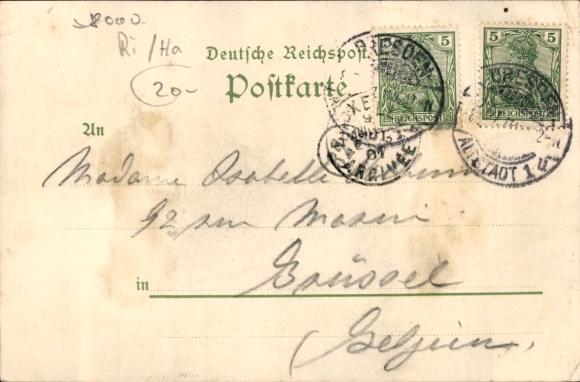 8000.
Ri/Ha
20-
Deutsche Reichspost
Postkarte
5
5
REICHSPOST
REICHSPOST
DRESDEN
DRESDEN
ALTSTADT 1
ARRIVÉE
An
Madame Isabelle
92 rue
in Brüssel
Belgien